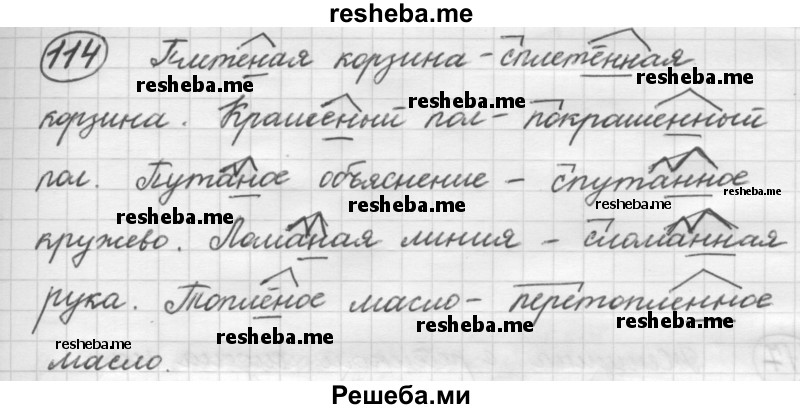 resheba.me
114 Плетёная корзина - сплетённая
resheba.me resheba.me
корзина. Крашеный пол - покрашенный
resheba.me resheba.me
пол. Путаное объяснение - спутанное
resheba.me resheba.me resheba.me
кружево. Ломаная линия - сломанная
рука. Топлёное масло - перетопленное
resheba.me resheba.me resheba.me
масло.
Решеба.ми